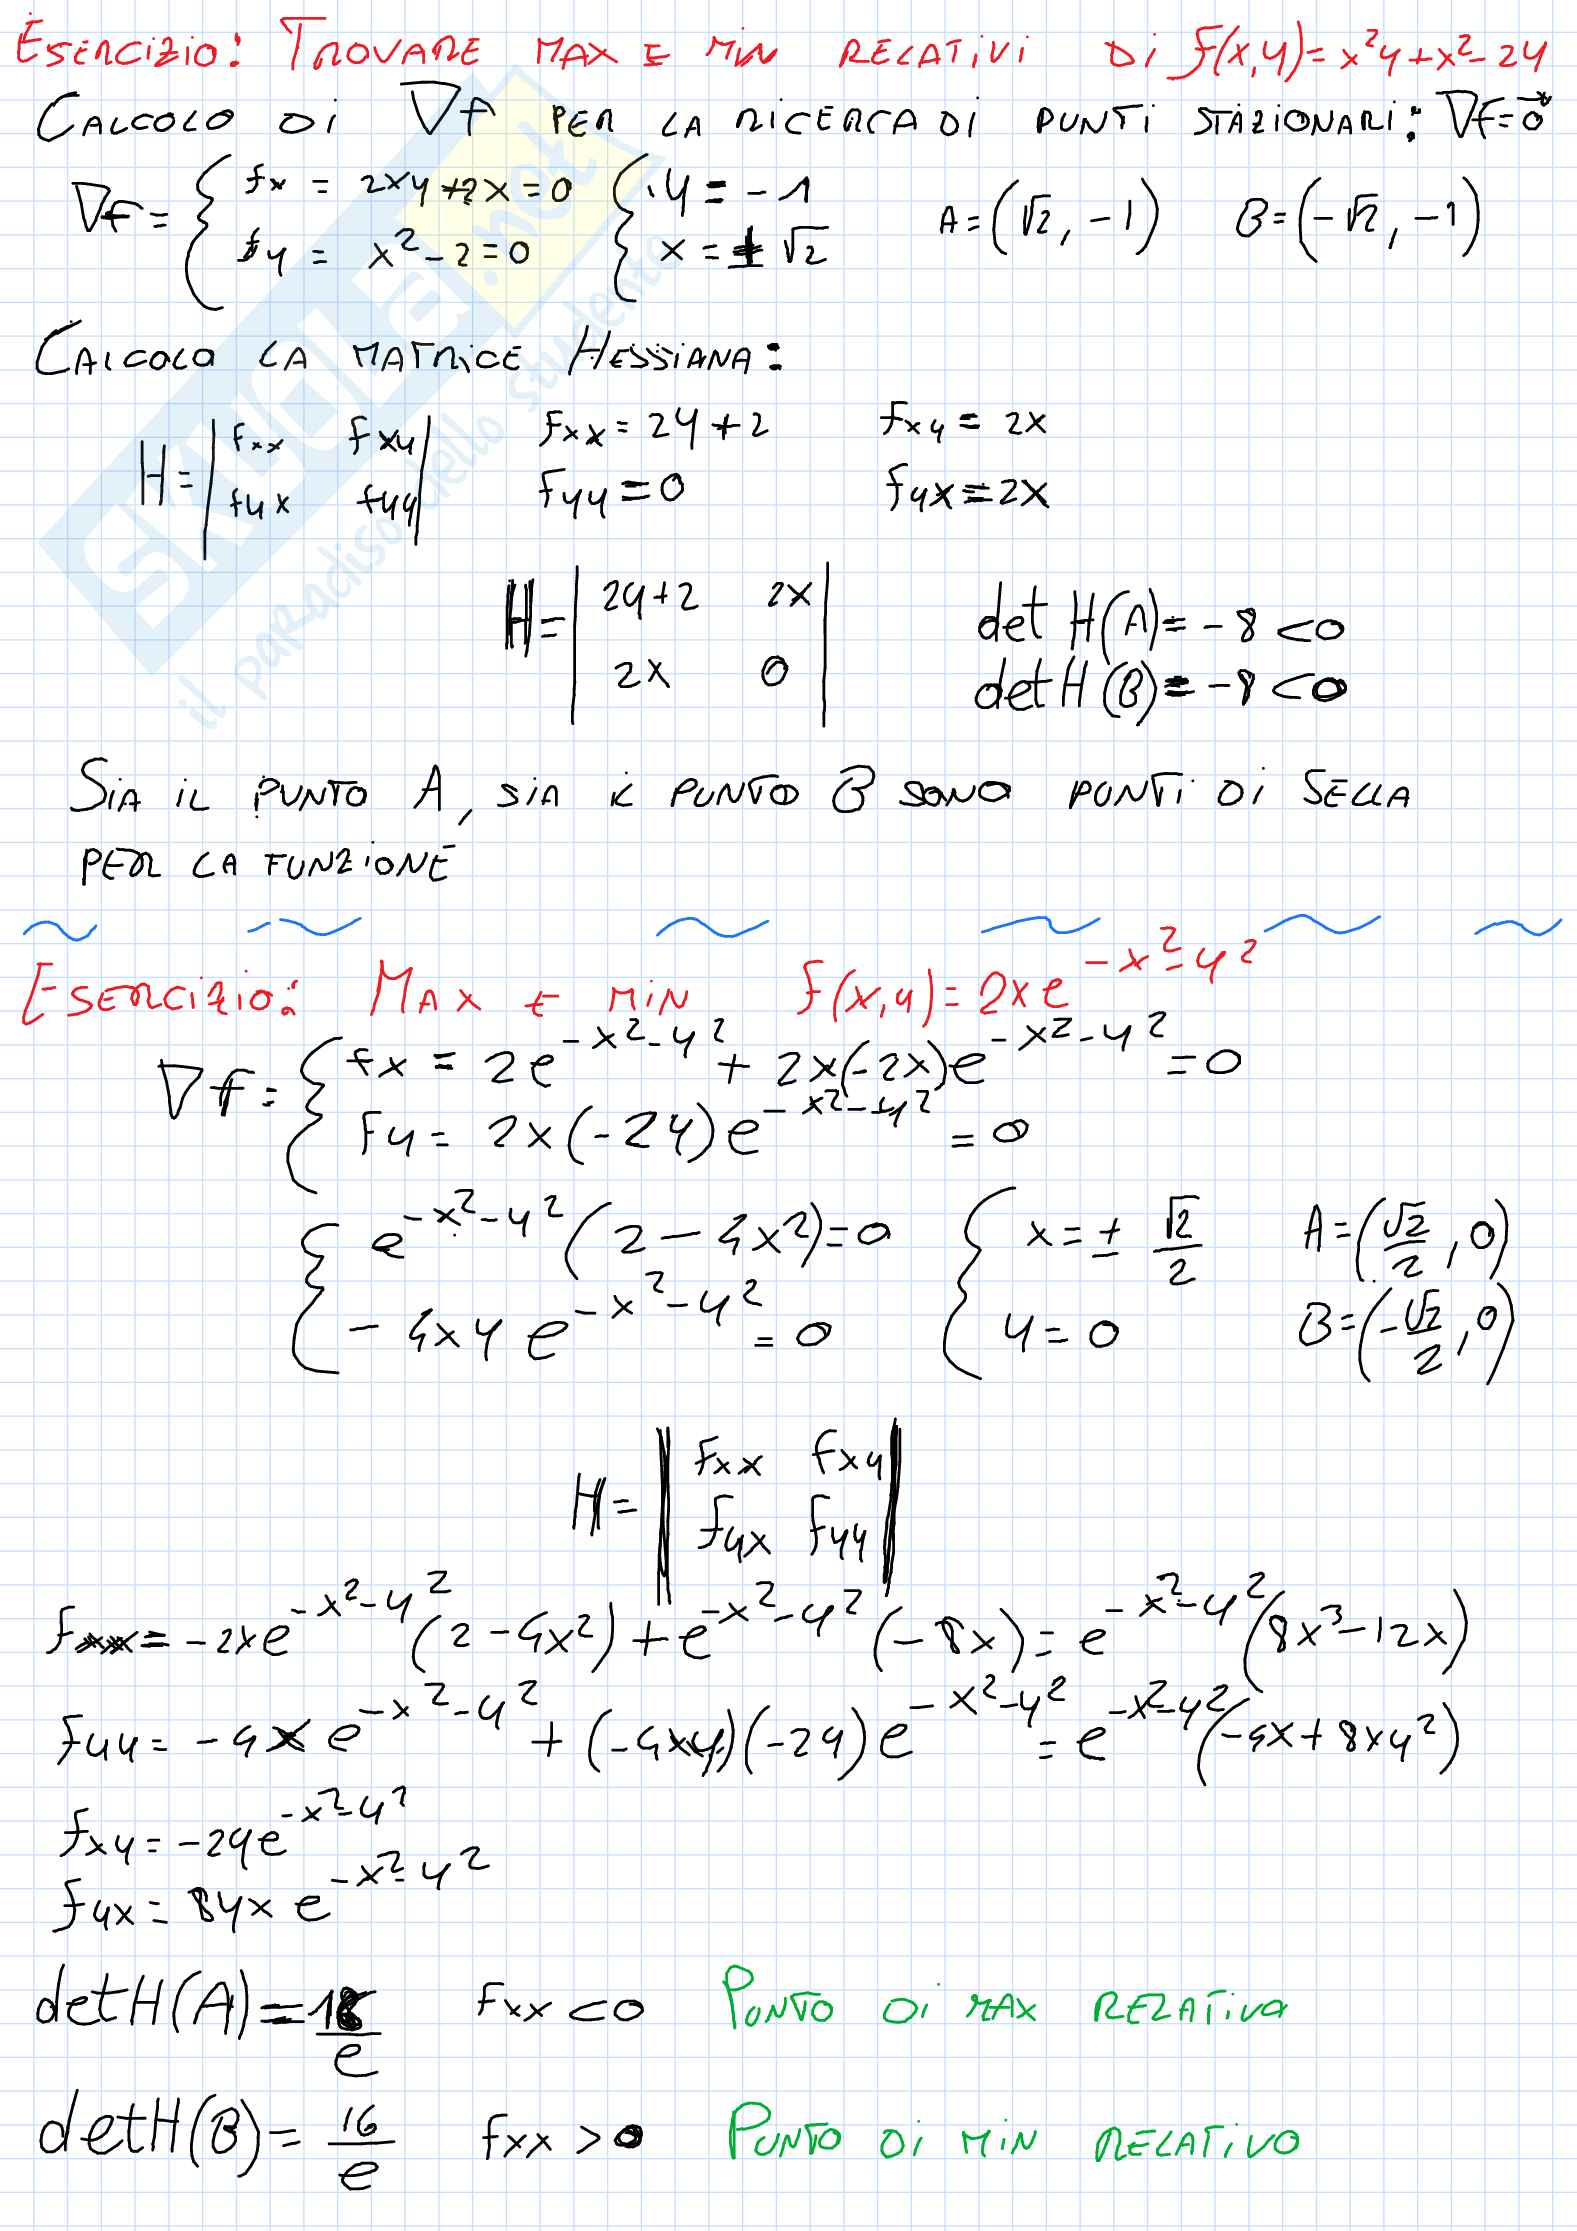 ESERCIZIO: TROVARE MAX E MIN RELATIVI DI f(x,y)=x²y+x²-2y
CALCOLO DI ∇f PER LA RICERCA DI PUNTI STAZIONARI: ∇f=0⃗
∇f = { fx = 2xy+2x=0 { y=-1 A=(√2,-1) B=(-√2,-1)
fy = x²-2=0 x=±√2
CALCOLO LA MATRICE HESSIANA:
H= | fxx fxy | fxx=2y+2 fxy=2x
| fyx fyy | fyy=0 fyx=2x
H= | 2y+2 2x | det H(A)=-8<0
| 2x 0 | det H(B)=-8<0
SIA IL PUNTO A, SIA IL PUNTO B SONO PUNTI DI SELLA
PER LA FUNZIONE
ESERCIZIO: MAX E MIN f(x,y)=2xe^{-x²-y²}
∇f= { fx = 2e^{-x²-y²} + 2x(-2x)e^{-x²-y²} =0
fy = 2x(-2y)e^{-x²-y²} =0
{ e^{-x²-y²}(2-4x²)=0 { x=± √2/2 A=(√2/2,0)
-4xy e^{-x²-y²}=0 y=0 B=(-√2/2,0)
H= | fxx fxy |
| fyx fyy |
fxx=-2xe^{-x²-y²}(2-4x²)+e^{-x²-y²}(-8x)=e^{-x²-y²}(8x³-12x)
fyy=-4xe^{-x²-y²}+(-4xy)(-2y)e^{-x²-y²}=e^{-x²-y²}(-4x+8xy²)
fxy=-2ye^{-x²-y²}
fyx=8yxe^{-x²-y²}
det H(A)=16/e fxx<0 PUNTO DI MAX RELATIVO
det H(B)=16/e fxx>0 PUNTO DI MIN RELATIVO
SKUOLA.net
il paradiso dello studente